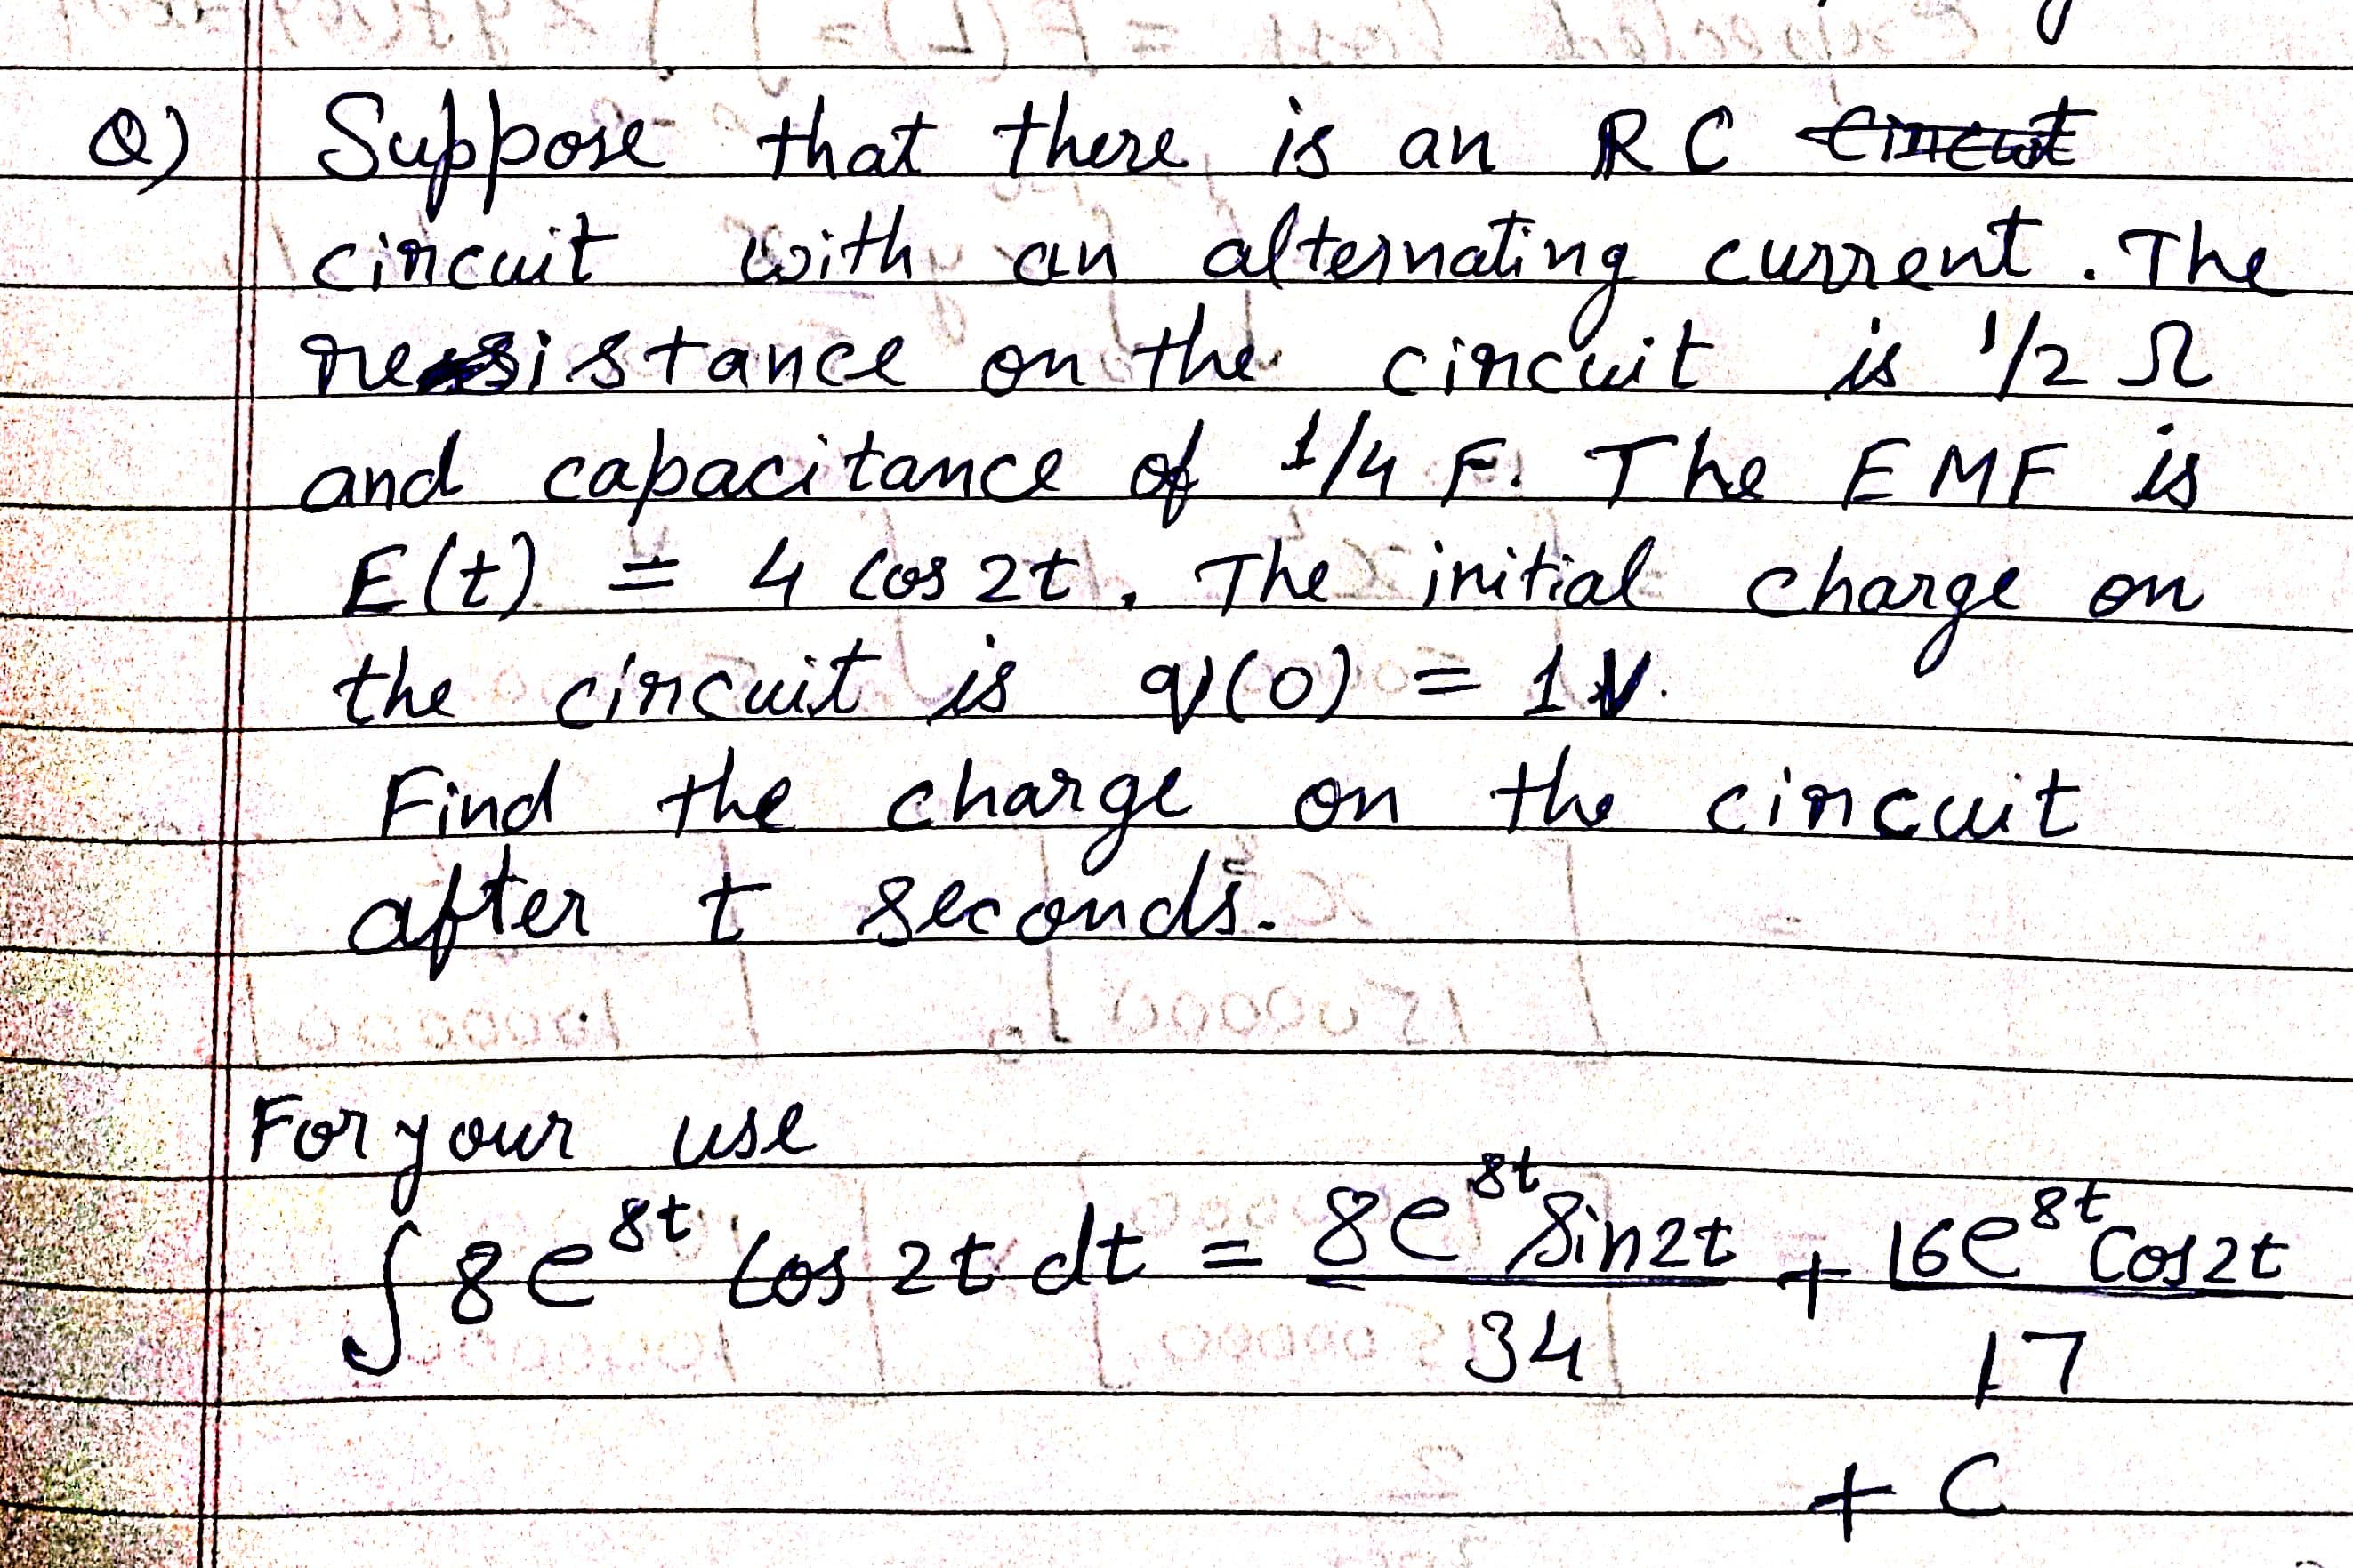 Q) Suppose that there is an RC
circuit with an alternating current. The
resistance on the circuit is 1/2 Ω
and capacitance of 1/4 F. The EMF is
E(t) = 4 cos 2t. The initial charge on
the circuit is q(0) = 1 V.
Find the charge on the circuit
after t seconds.
For your use
∫ 8e^{8t} cos 2t dt = 8e^{8t} sin2t / 34 + 16e^{8t} cos2t / 17
+ C